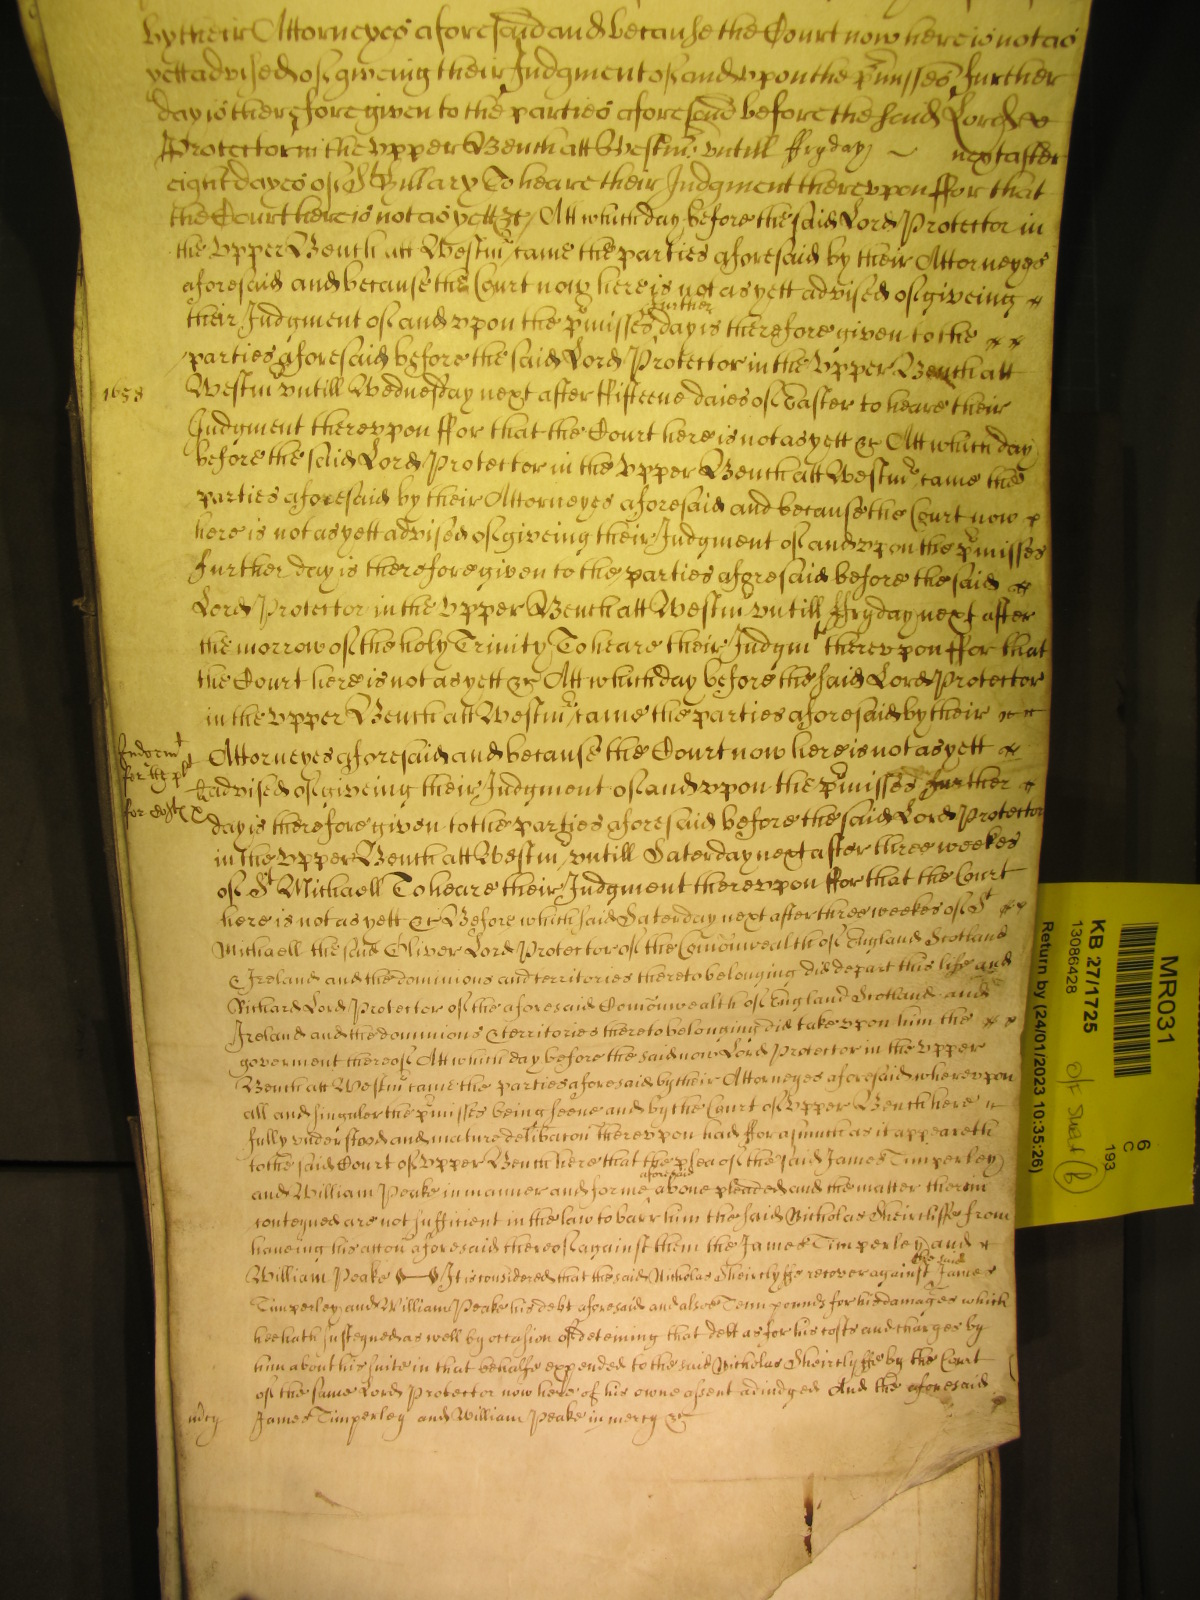 by their Attorneyes aforesaid and because the Court now here is not as
yett advised of giveing their Judgment of and upon the p̄misses further
day is therefore given to the parties aforesaid before the said Lord
Protector in the Upper Bench att Westm̄ untill ffryday ~ next after
eight dayes of St Hillary To heare their Judgment thereupon ffor that
the Court here is not as yett &c Att which day before the said Lord Protector in
the Upper Bench att Westm̄ came the parties aforesaid by their Attorneyes
aforesaid and because the Court now here is not as yett advised of giveing
further
their Judgment of and upon the p̄misses day is therefore given to the
parties aforesaid before the said Lord Protector in the Upper Bench att
1658 Westm̄ untill Wednesday next after ffifteene daies of Easter to heare their
Judgment thereupon ffor that the Court here is not as yett &c Att which day
before the said Lord Protector in the Upper Bench att Westm̄ came the
parties aforesaid by their Attorneyes aforesaid and because the Court now
here is not as yett advised of giveing their Judgment of and upon the p̄misses
further day is therefore given to the parties aforesaid before the said
Lord Protector in the Upper Bench att Westm̄ untill ffryday next after
the morrow of the holy Trinity To heare their Judgmt thereupon ffor that
the Court here is not as yett &c Att which day before the said Lord Protector
in the Upper Bench att Westm̄ came the parties aforesaid by their
Judgmt for the plt
Attorneyes aforesaid and because the Court now here is not as yett
advised of giveing their Judgment of and upon the p̄misses further
day is therefore given to the parties aforesaid before the said Lord Protector
in the Upper Bench att Westm̄ untill Saterday next after three weekes
of St Michaell To heare their Judgment thereupon ffor that the Court
here is not as yett &c Before which said Saterday next after three weekes of St
Michaell the said Oliver Lord Protector of the Com̄onwealth of England Scotland
& Ireland and the dominions and territories thereto belonging did depart this life and
Richard Lord Protector of the aforesaid Com̄onwealth of England Scotland and
Ireland and the dominions & territories thereto belonging did take upon him the
goverment thereof Att which day before the said now Lord Protector in the Upper
Bench att Westm̄ came the parties aforesaid by their Attorneyes aforesaid whereupon
all and singuler the p̄misses being seene and by the Court of Upper Bench here
fully understood and mature delibac̄on thereupon had ffor asmuch as it appeareth
to the said Court of Upper Bench here that the plea of the said James Timperley
aforesaid
and William Peake in manner and forme above pleaded and the matter therein
conteyned are not sufficient in the law to barr him the said Nicholas Sheircliffe from
haveing his acc̄on aforesaid thereof against them the James Timperley and
the said
William Peake It is considered that the said Nicholas Sheirclyffe recover against James
Timperley and William Peake his debt aforesaid and alsoe Tenn pounds for his damages which
hee hath susteyned as well by occasion of deteining that debt as for his costs and charges by
him about his suite in that behalfe expended to the said Nicholas Sheirclyffe by the Court
of the same Lord Protector now here of his owne assent adiudged And the aforesaid
m̄cy James Timperley and William Peake in mercy &c
MR031
KB 27/1725
13086428
Return by (24/01/2023 10:35:26)
6
C
193